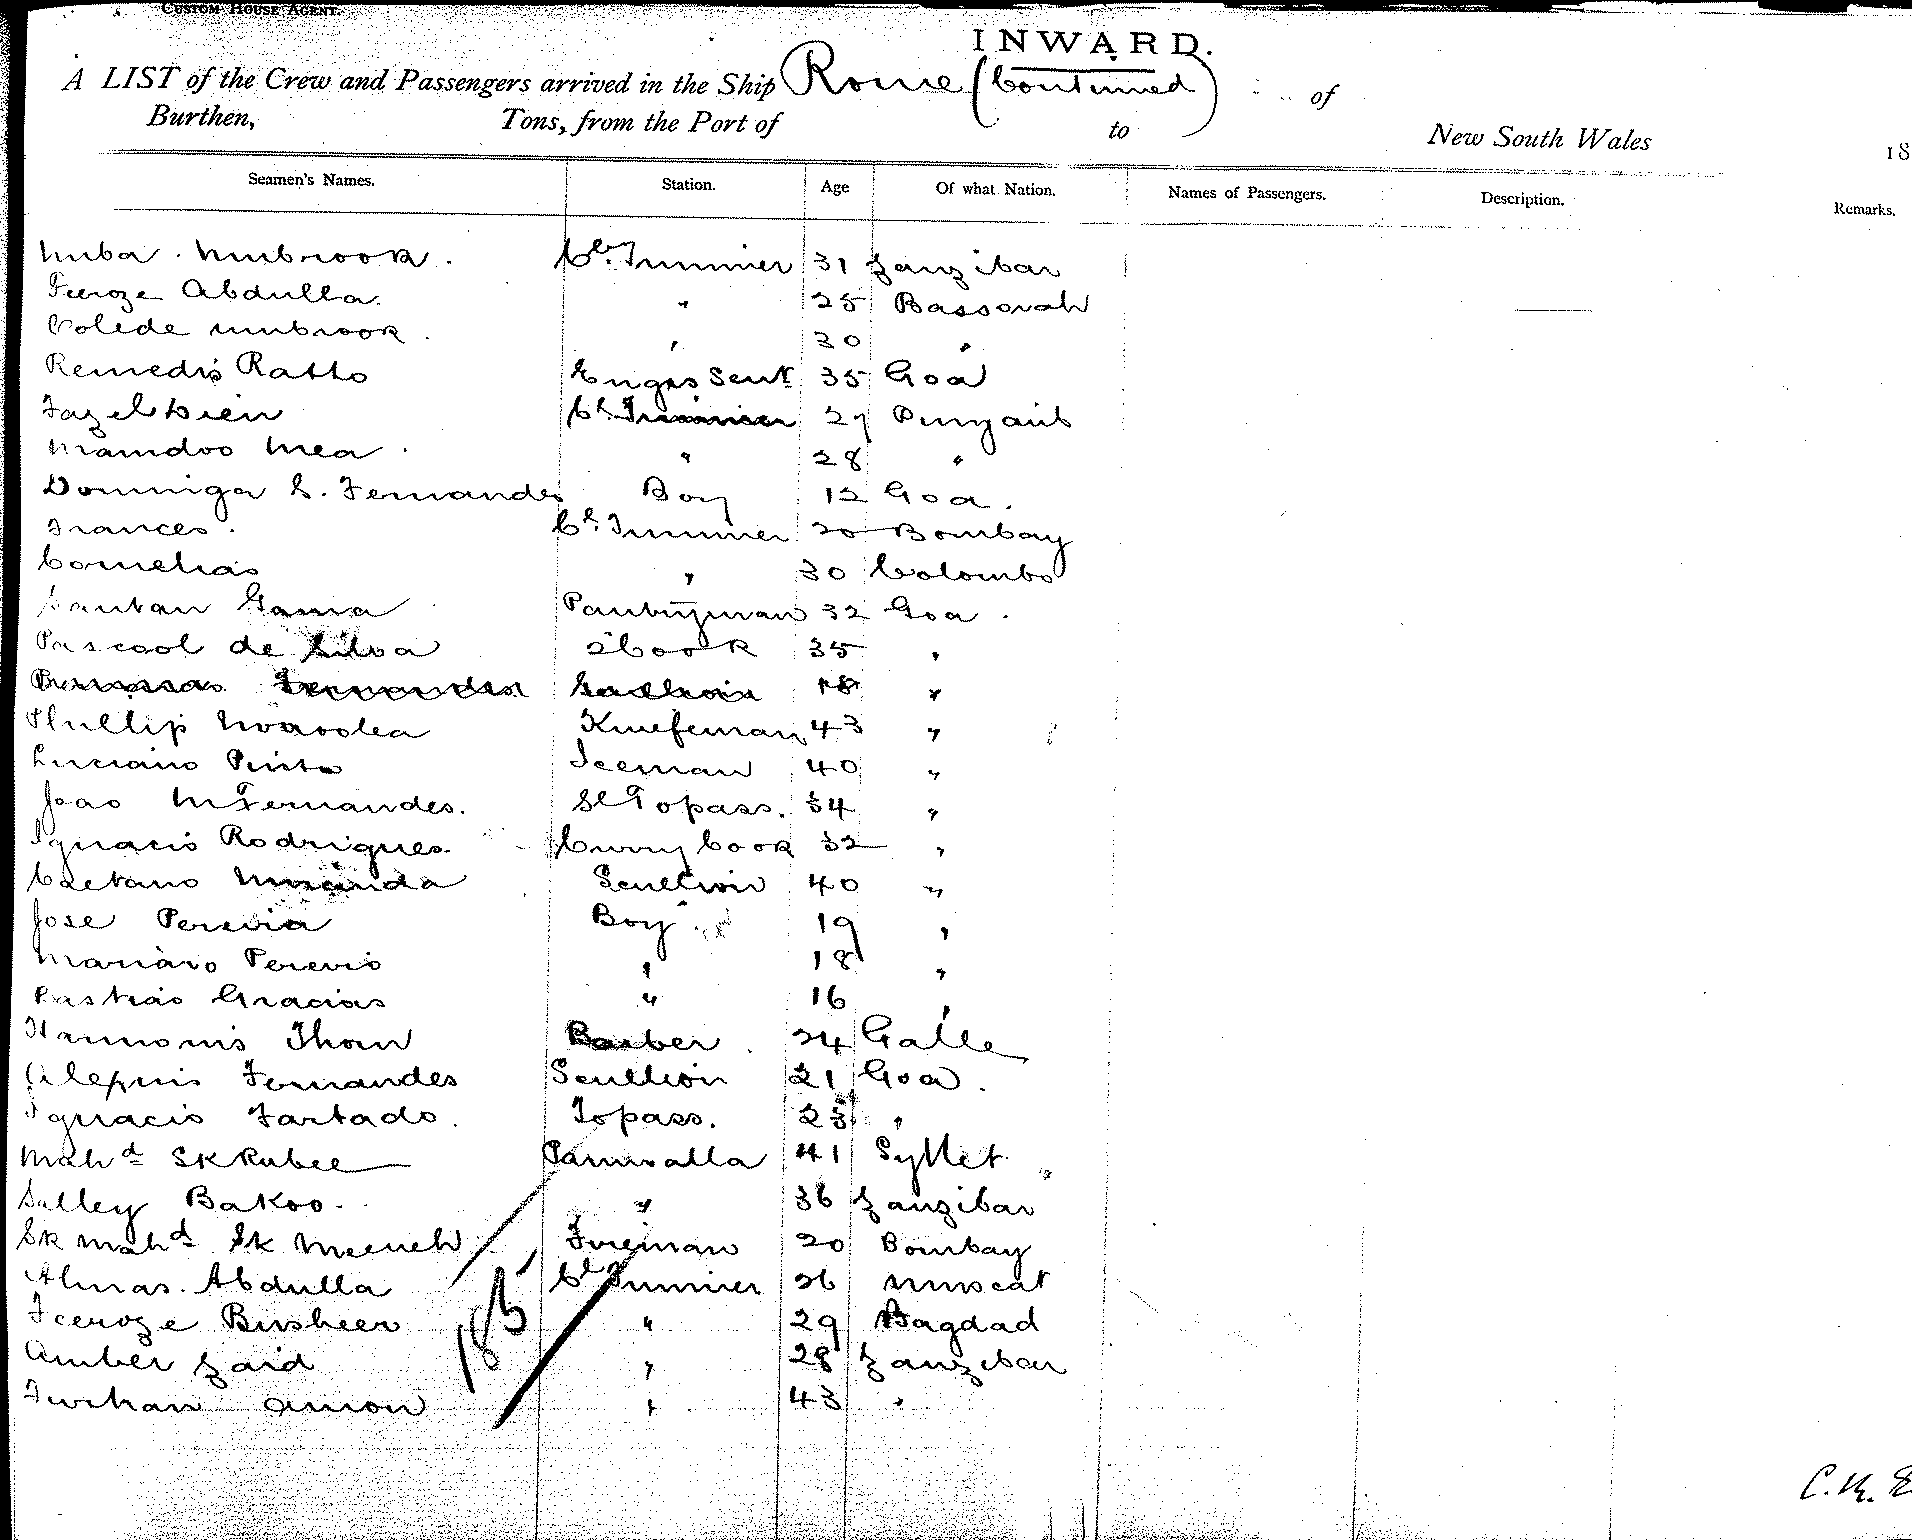 CUSTOM HOUSE AGENT.
INWARD.
A LIST of the Crew and Passengers arrived in the Ship Rome (Continued) of
Burthen, Tons, from the Port of to New South Wales 18
Seamen's Names. Station. Age Of what Nation. Names of Passengers. Description. Remarks.
Mubrook. Cl. Trimmer 31 Zanzibar
Feroze Abdulla. " 25 Bassorah
mubrook. " 30 "
Remedis Ratto Engrs Servt 35 Goa
Fazel Cl Trimmer 27 Punjaub
Mamdoo Mea " 28 "
Dominga S. Fernandes Boy 12 Goa.
Frances. Cl. Trimmer 20 Bombay
Cornelias " 30 Colombo
Gama Pantryman 32 Goa.
Pascool de Silva 2 Cook 35 "
Fernandes 18 "
Phillip Knifeman 43 "
Luciano Pinto 40 "
Joao M Fernandes. Sl Topass. 34 "
Ignacio Rodrigues Curry Cook 32 "
Caetano Miranda Scullion 40 "
Jose Pereria Boy 19 "
Mariano " 18 "
Gracias " 16 "
Thom Barber 24 Galle
Fernandes Scullion 21 Goa.
Ignacio Furtado. Topass. 23 "
Mahd Sk Rubee 41 Syllet
Salley Bakoo. " 36 Zanzibar
Sk Mahd Sk Fireman 20 Bombay
Almas. Abdulla Cl Trimmer 26 Muscat
Feeroze Busheer " 29 Bagdad
Amber Zaid " 28 Zanzibar
Furhan Amon " 43 "